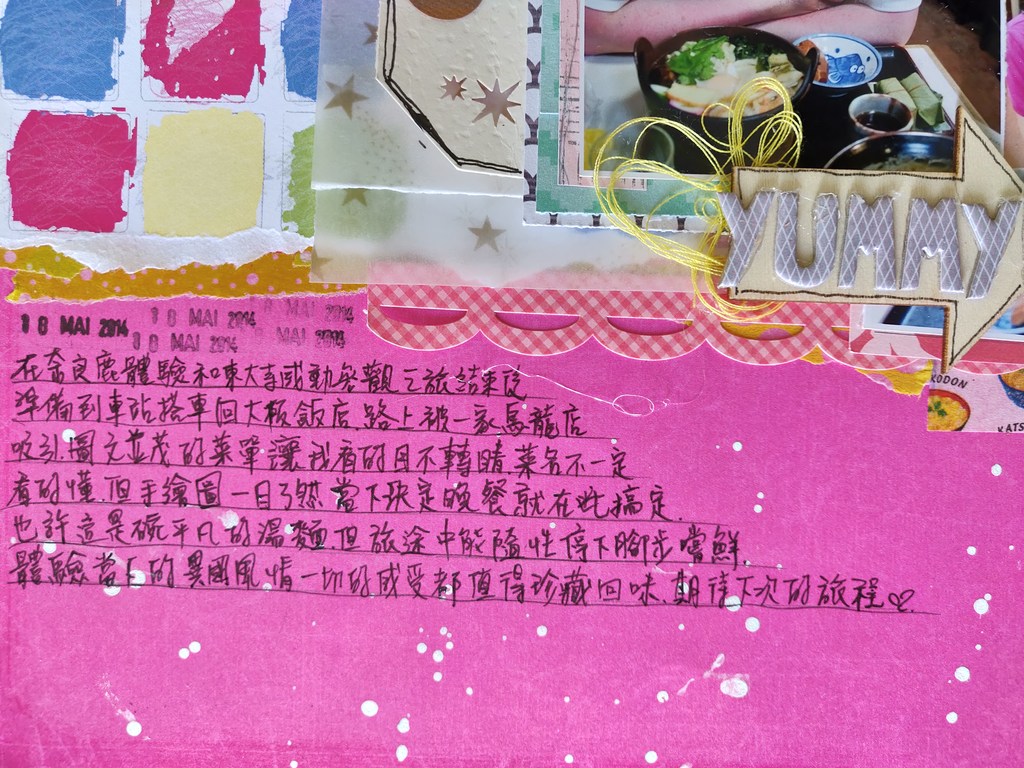 YUMMY
18 MAI 2014
18 MAI 2014
18 MAI 2014
MAI 2014
KODON
KATS
在奈良鹿體驗和東大寺感動參觀之旅結束後
準備到車站搭車回大阪飯店.路上被一家烏龍店
吸引.圖文並茂的菜單讓我看的目不轉睛菜名不一定
看的懂.但手繪圖一目了然.當下決定晚餐就在此搞定.
也許這是碗平凡的湯麵.但旅途中能隨性停下腳步嚐鮮.
體驗當下的異國風情一切的感受都值得珍藏回味.期待下次的旅程